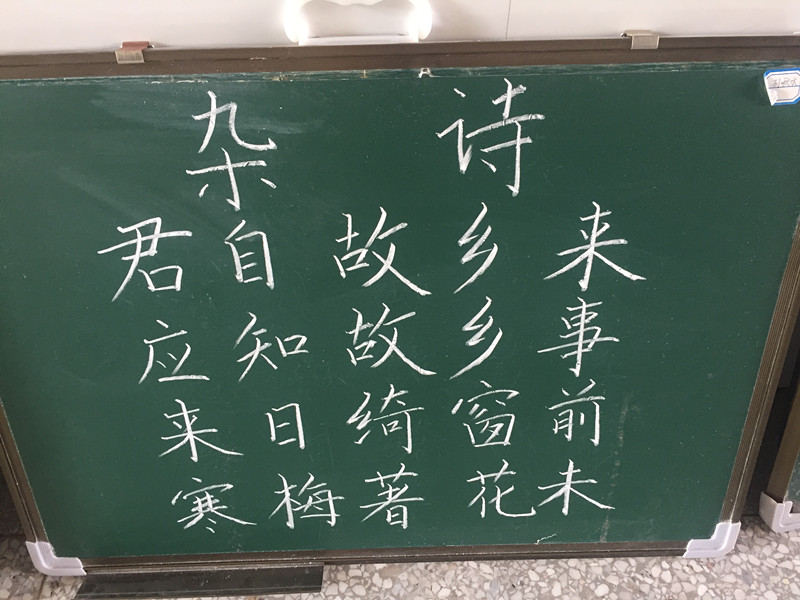 杂诗
君自故乡来
应知故乡事
来日绮窗前
寒梅著花未